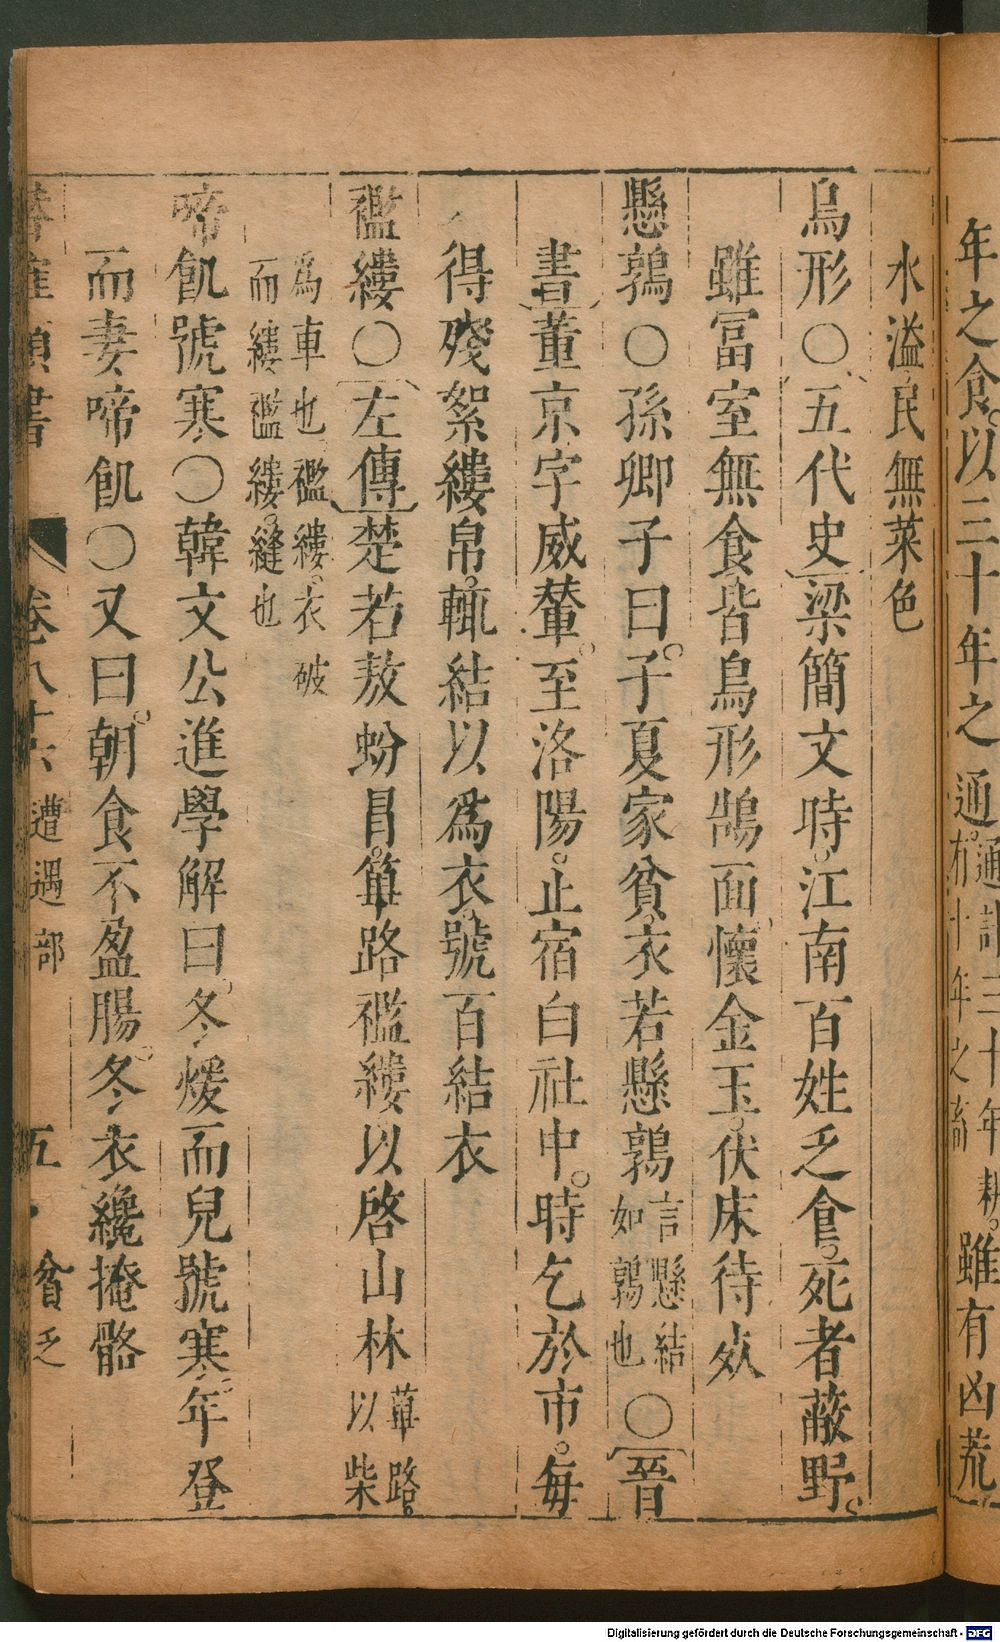 年之食。以三十年之通。通計三十年有十年之畜耕。雖有凶荒
水溢民無菜色
烏形○五代史梁簡文時。江南百姓乏食。死者蔽野。
雖富室無食。皆烏形鵠面。懷金玉。伏床待死
懸鶉○孫卿子曰。子夏家貧。衣若懸鶉言懸結如鶉也○晉
書董京字威輦。至洛陽。止宿白社中。時乞於市。每
得殘絮縷帛。輒結以爲衣。號百結衣
襤縷○左傳楚若敖蚡冒。篳路襤縷以啓山林篳路。以柴
爲車也襤縷。衣破而縷襤縷。縫也
啼飢號寒○韓文公進學解曰。冬煖而兒號寒。年登
而妻啼飢○又曰。朝食不盈腸。冬衣纔掩骼
類書 卷八十六 遭遇部 五 貧乏
Digitalisierung gefördert durch die Deutsche Forschungsgemeinschaft - DFG